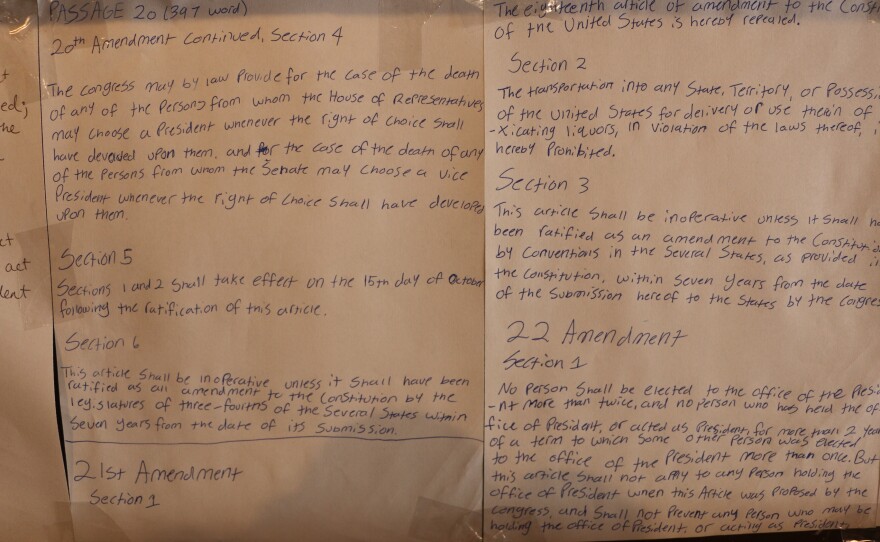 t
ed;
he
ct
act
dent
PASSAGE 20 (397 word)
20th Amendment Continued, Section 4
The congress may by law provide for the case of the death
of any of the Persons from whom the House of Representatives
may choose a President whenever the right of choice shall
have devevded upon them, and for the case of the death of any
of the Persons from whom the Senate may choose a vice
President whenever the right of choice shall have developed
upon them.
Section 5
Sections 1 and 2 shall take effect on the 15th day of October
following the ratification of this article.
Section 6
This article shall be inoperative unless it shall have been
ratified as an amendment to the Constitution by the
legislatures of three-fourths of the Several States within
Seven years from the date of its Submission.
21st Amendment
Section 1
The eighteenth article of amendment to the Consti
of the United States is hereby repealed.
Section 2
The transportation into any State, Territory, or Possess
of the United States for delivery or use therin of
-xicating liquors, in violation of the laws thereof, i
hereby Prohibited.
Section 3
This article shall be inoperative unless it shall ha
been ratified as an amendment to the Constitutio
by Conventions in the Several States, as provided i
the Constitution, within Seven years from the date
of the Submission hereof to the States by the Congres
22 Amendment
Section 1
No Person Shall be elected to the office of the Presi
-nt more than twice, and no person who has held the of
fice of President, or acted as President, for more than 2 year
of a term to which some other Person was elected
to the office of the President more than once. But
this article shall not apply to any Person holding the
office of President when this Article was proposed by the
Congress, and shall not prevent any Person who may be
holding the office of President, or acting as President